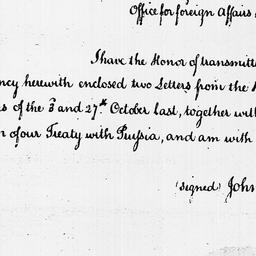 Office for foreign Affairs
I have the Honor of transmitt
ncy herewith enclosed two Letters from the
s of the 3 and 27th October last, together wit
n of our Treaty with Prussia, and am with
(signed) John